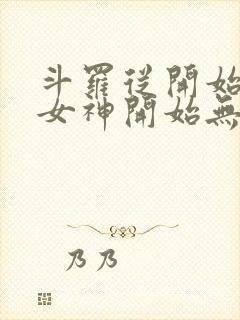 斗羅從開始
女神開始無
乃乃